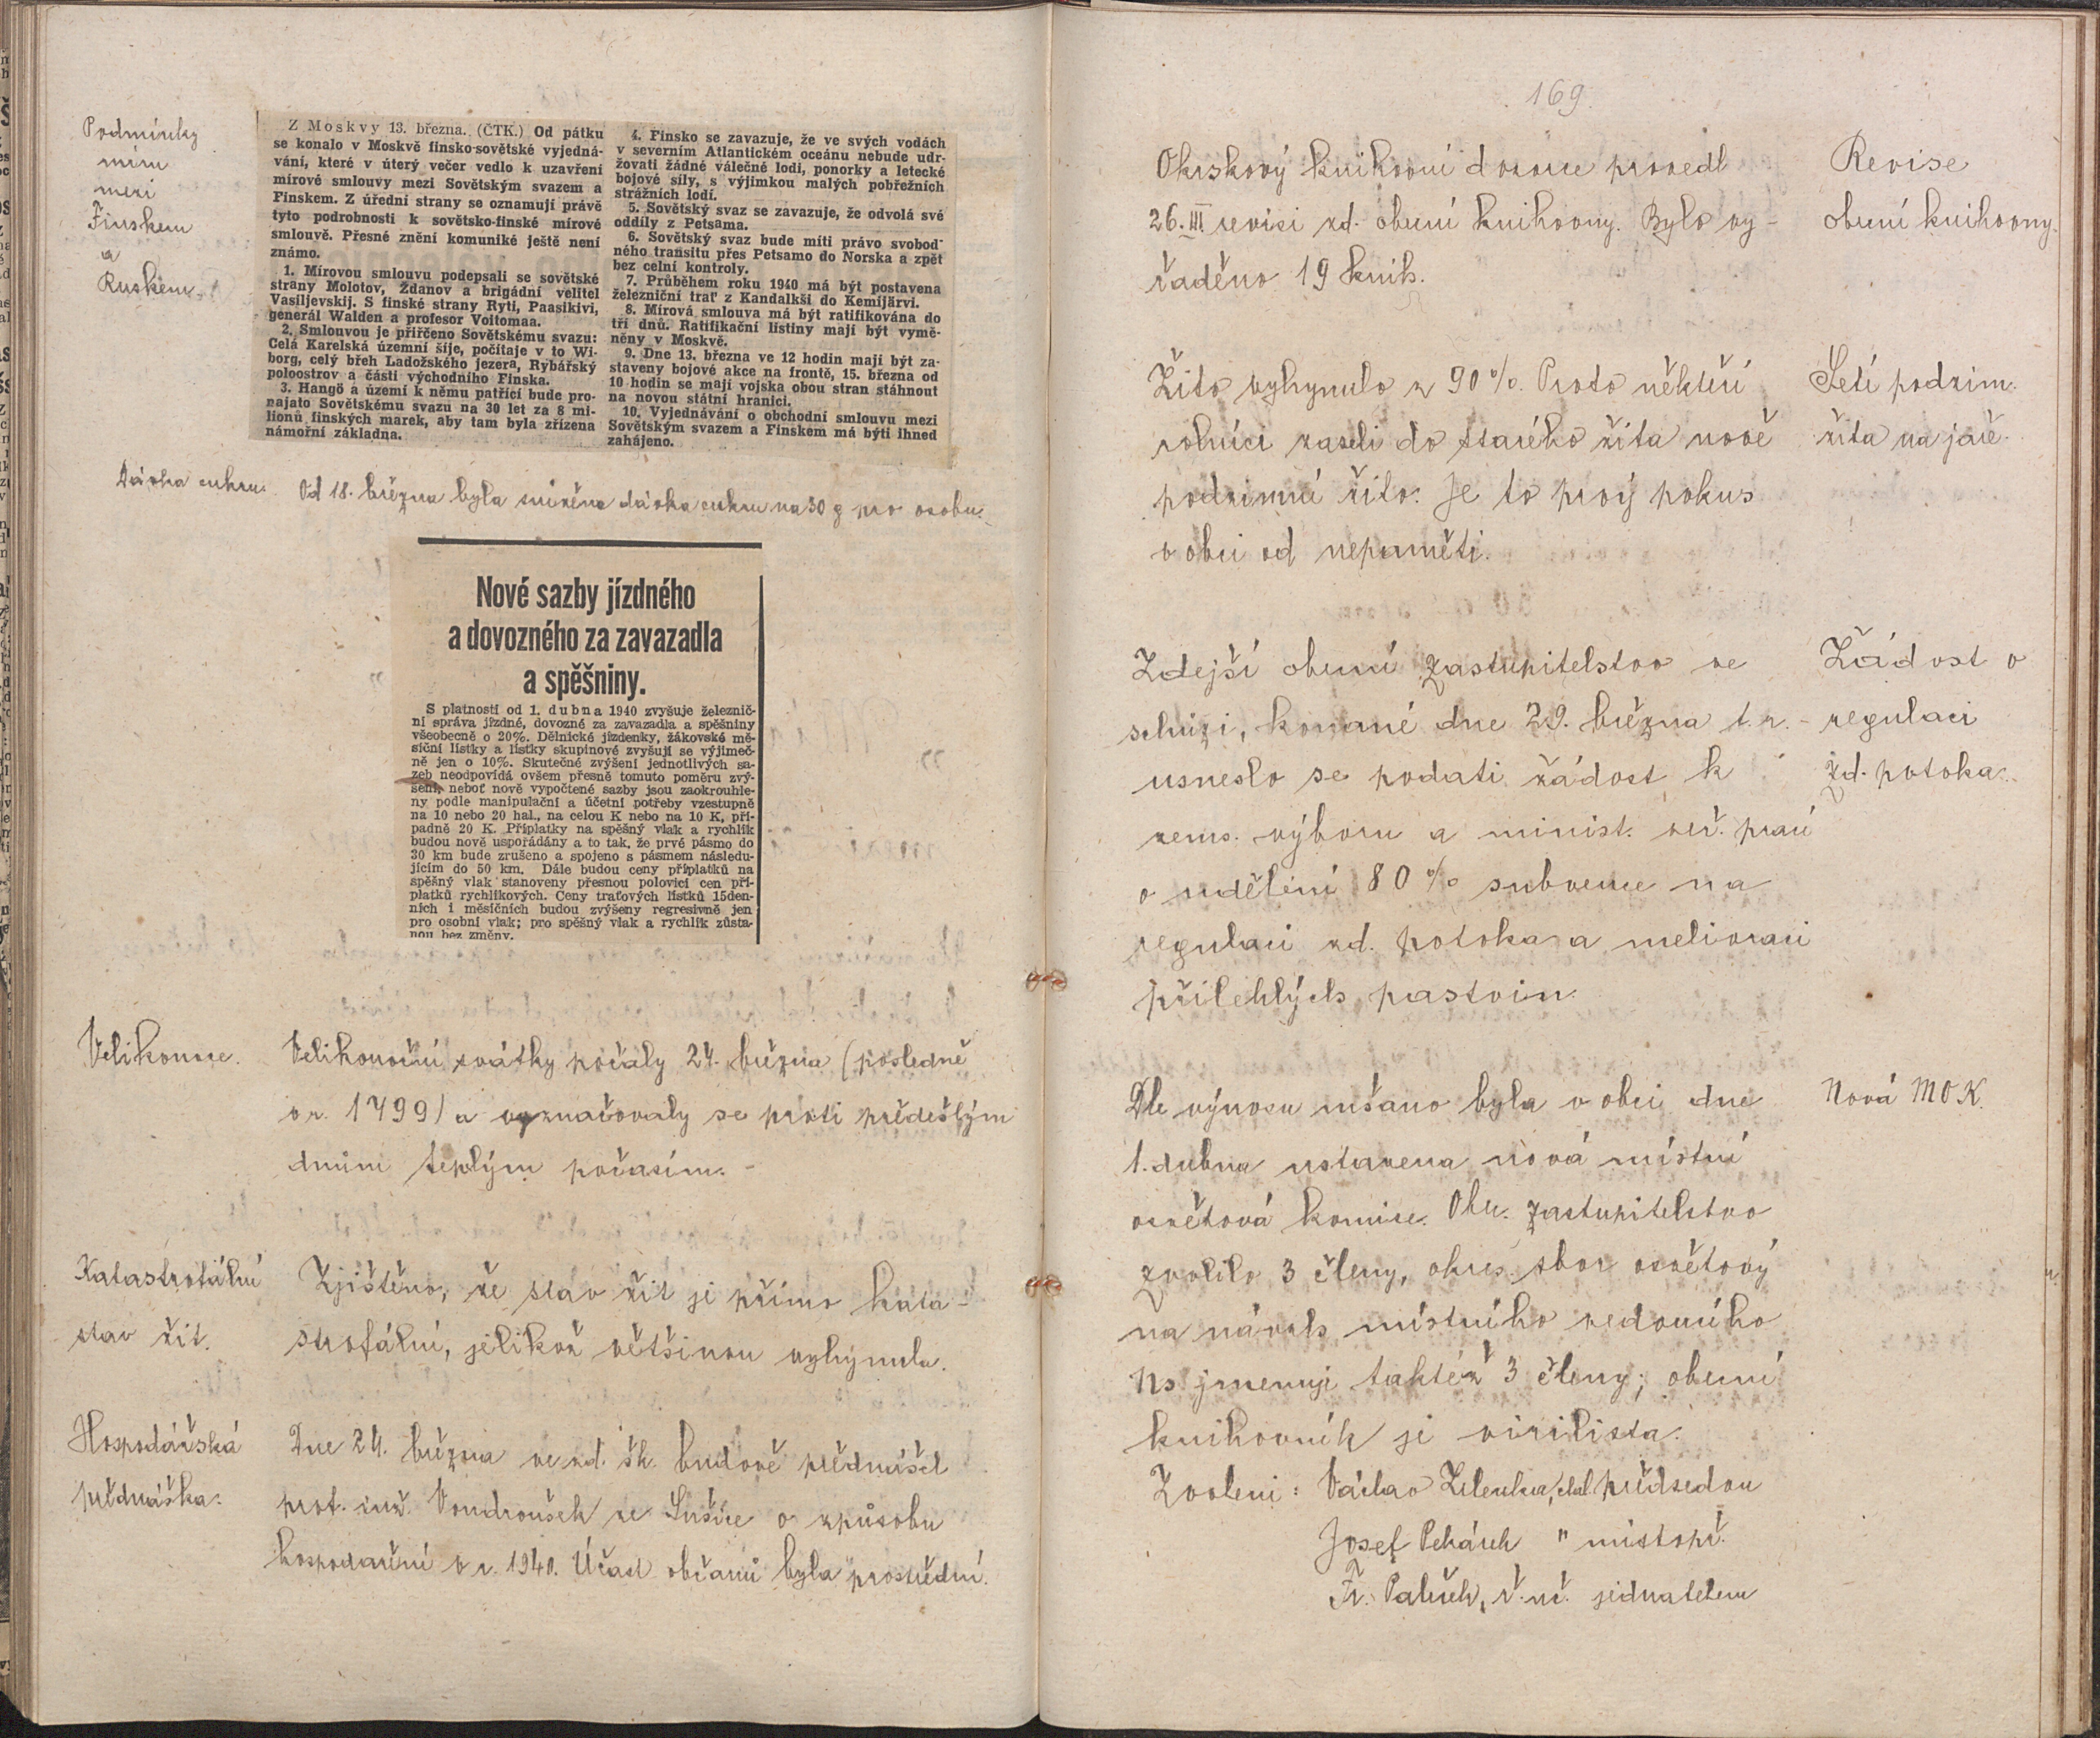 Podmínky
míru
mezi
Finskem
a
Ruskem.
Z Moskvy 13. března. (ČTK.) Od pátku
se konalo v Moskvě finsko-sovětské vyjedná-
vání, které v úterý večer vedlo k uzavření
mírové smlouvy mezi Sovětským svazem a
Finskem. Z úřední strany se oznamují právě
tyto podrobnosti k sovětsko-finské mírové
smlouvě. Přesné znění komuniké ještě není
známo.
1. Mírovou smlouvu podepsali se sovětské
strany Molotov, Ždanov a brigádní velitel
Vasiljevskij. S finské strany Ryti, Paasikivi,
generál Walden a profesor Voitomaa.
2. Smlouvou je přiřčeno Sovětskému svazu:
Celá Karelská územní šíje, počítaje v to Wi-
borg, celý břeh Ladožského jezera, Rybářský
poloostrov a části východního Finska.
3. Hangö a území k němu patřící bude pro-
najato Sovětskému svazu na 30 let za 8 mi-
lionů finských marek, aby tam byla zřízena
námořní základna.
4. Finsko se zavazuje, že ve svých vodách
v severním Atlantickém oceánu nebude udr-
žovati žádné válečné lodi, ponorky a letecké
bojové síly, s výjimkou malých pobřežních
strážních lodí.
5. Sovětský svaz se zavazuje, že odvolá své
oddíly z Petsama.
6. Sovětský svaz bude míti právo svobod-
ného transitu přes Petsamo do Norska a zpět
bez celní kontroly.
7. Průběhem roku 1940 má být postavena
železniční trať z Kandalkši do Kemijärvi.
8. Mírová smlouva má být ratifikována do
tří dnů. Ratifikační listiny mají být vymě-
něny v Moskvě.
9. Dne 13. března ve 12 hodin mají být za-
staveny bojové akce na frontě, 15. března od
10 hodin se mají vojska obou stran stáhnout
na novou státní hranici.
10. Vyjednávání o obchodní smlouvu mezi
Sovětským svazem a Finskem má býti ihned
zahájeno.
Dávka cukru. Od 18. března byla snížena dávka cukru na 30 g pro osobu.
Nové sazby jízdného
a dovozného za zavazadla
a spěšniny.
S platností od 1. dubna 1940 zvyšuje železnič-
ní správa jízdné, dovozné za zavazadla a spěšniny
všeobecně o 20%. Dělnické jízdenky, žákovské mě-
síční lístky a lístky skupinové zvyšují se výjimeč-
ně jen o 10%. Skutečné zvýšení jednotlivých sa-
zeb neodpovídá ovšem přesně tomuto poměru zvý-
šení, neboť nově vypočtené sazby jsou zaokrouhle-
ny podle manipulační a účetní potřeby vzestupně
na 10 nebo 20 hal., na celou K nebo na 10 K, pří-
padně 20 K. Příplatky na spěšný vlak a rychlík
budou nově uspořádány a to tak, že prvé pásmo do
30 km bude zrušeno a spojeno s pásmem následu-
jícím do 50 km. Dále budou ceny příplatků na
spěšný vlak stanoveny přesnou polovicí cen pří-
platků rychlíkových. Ceny traťových lístků 15den-
ních i měsíčních budou zvýšeny regresivně jen
pro osobní vlak; pro spěšný vlak a rychlík zůsta-
nou bez změny.
Velikonoce. Velikonoční svátky počaly 24. března (posledně
v r. 1799) a vyznačovaly se proti předešlým
dnům teplým počasím. -
Katastrofální
stav žit.
Zjištěno, že stav žit je přímo kata-
strofální, jelikož většinou vyhynula.
Hospodářská
přednáška.
Dne 24. března ve zd. šk. budově přednášel
prof. inž. Vondroušek ze Sušice o způsobu
hospodaření v r. 1940. Účast občanů byla prostřední.
169.
Okrskový knihovní dozorce provedl
26. III. revisi zd. obecní knihovny. Bylo vy-
řaděno 19 knih.
Revise
obecní knihovny.
Žito vyhynulo z 90%. Proto někteří
rolníci zaseli do starého žita nově
podzimní žito. Je to prvý pokus
v obci od nepaměti.
Setí podzim.
žita na jaře.
Zdejší obecní zastupitelstvo ve
schůzi, konané dne 29. března t. r. -
usneslo se podati žádost k
zems. výboru a minist. veř. prací
o udělení 80% subvence na
regulaci zd. potoka a melioraci
přilehlých pastvin.
Žádost o
regulaci
zd. potoka.
Dle výnosu mšano byla v obci dne
1. dubna ustavena nová místní
osvětová komise. Obec. zastupitelstvo
zvolilo 3 členy, okres. sbor osvětový
na návrh místního vedoucího
NS jmenuje taktéž 3 členy; obecní
knihovník je virilista.
Zvoleni: Václav Zelenka, chal. předsedou
Josef Pekárek " místopř.
Fr. Paleček, ř. uč. jednatelem
Nová MOK.